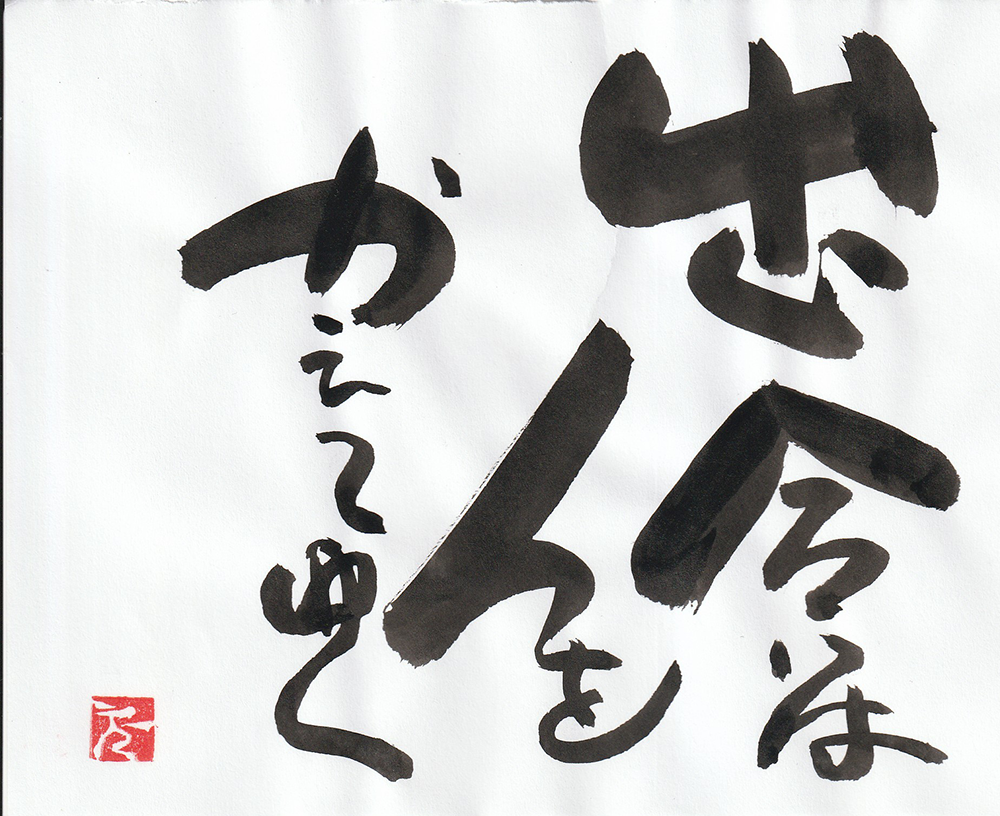 出合いは
人を
かえてゆく